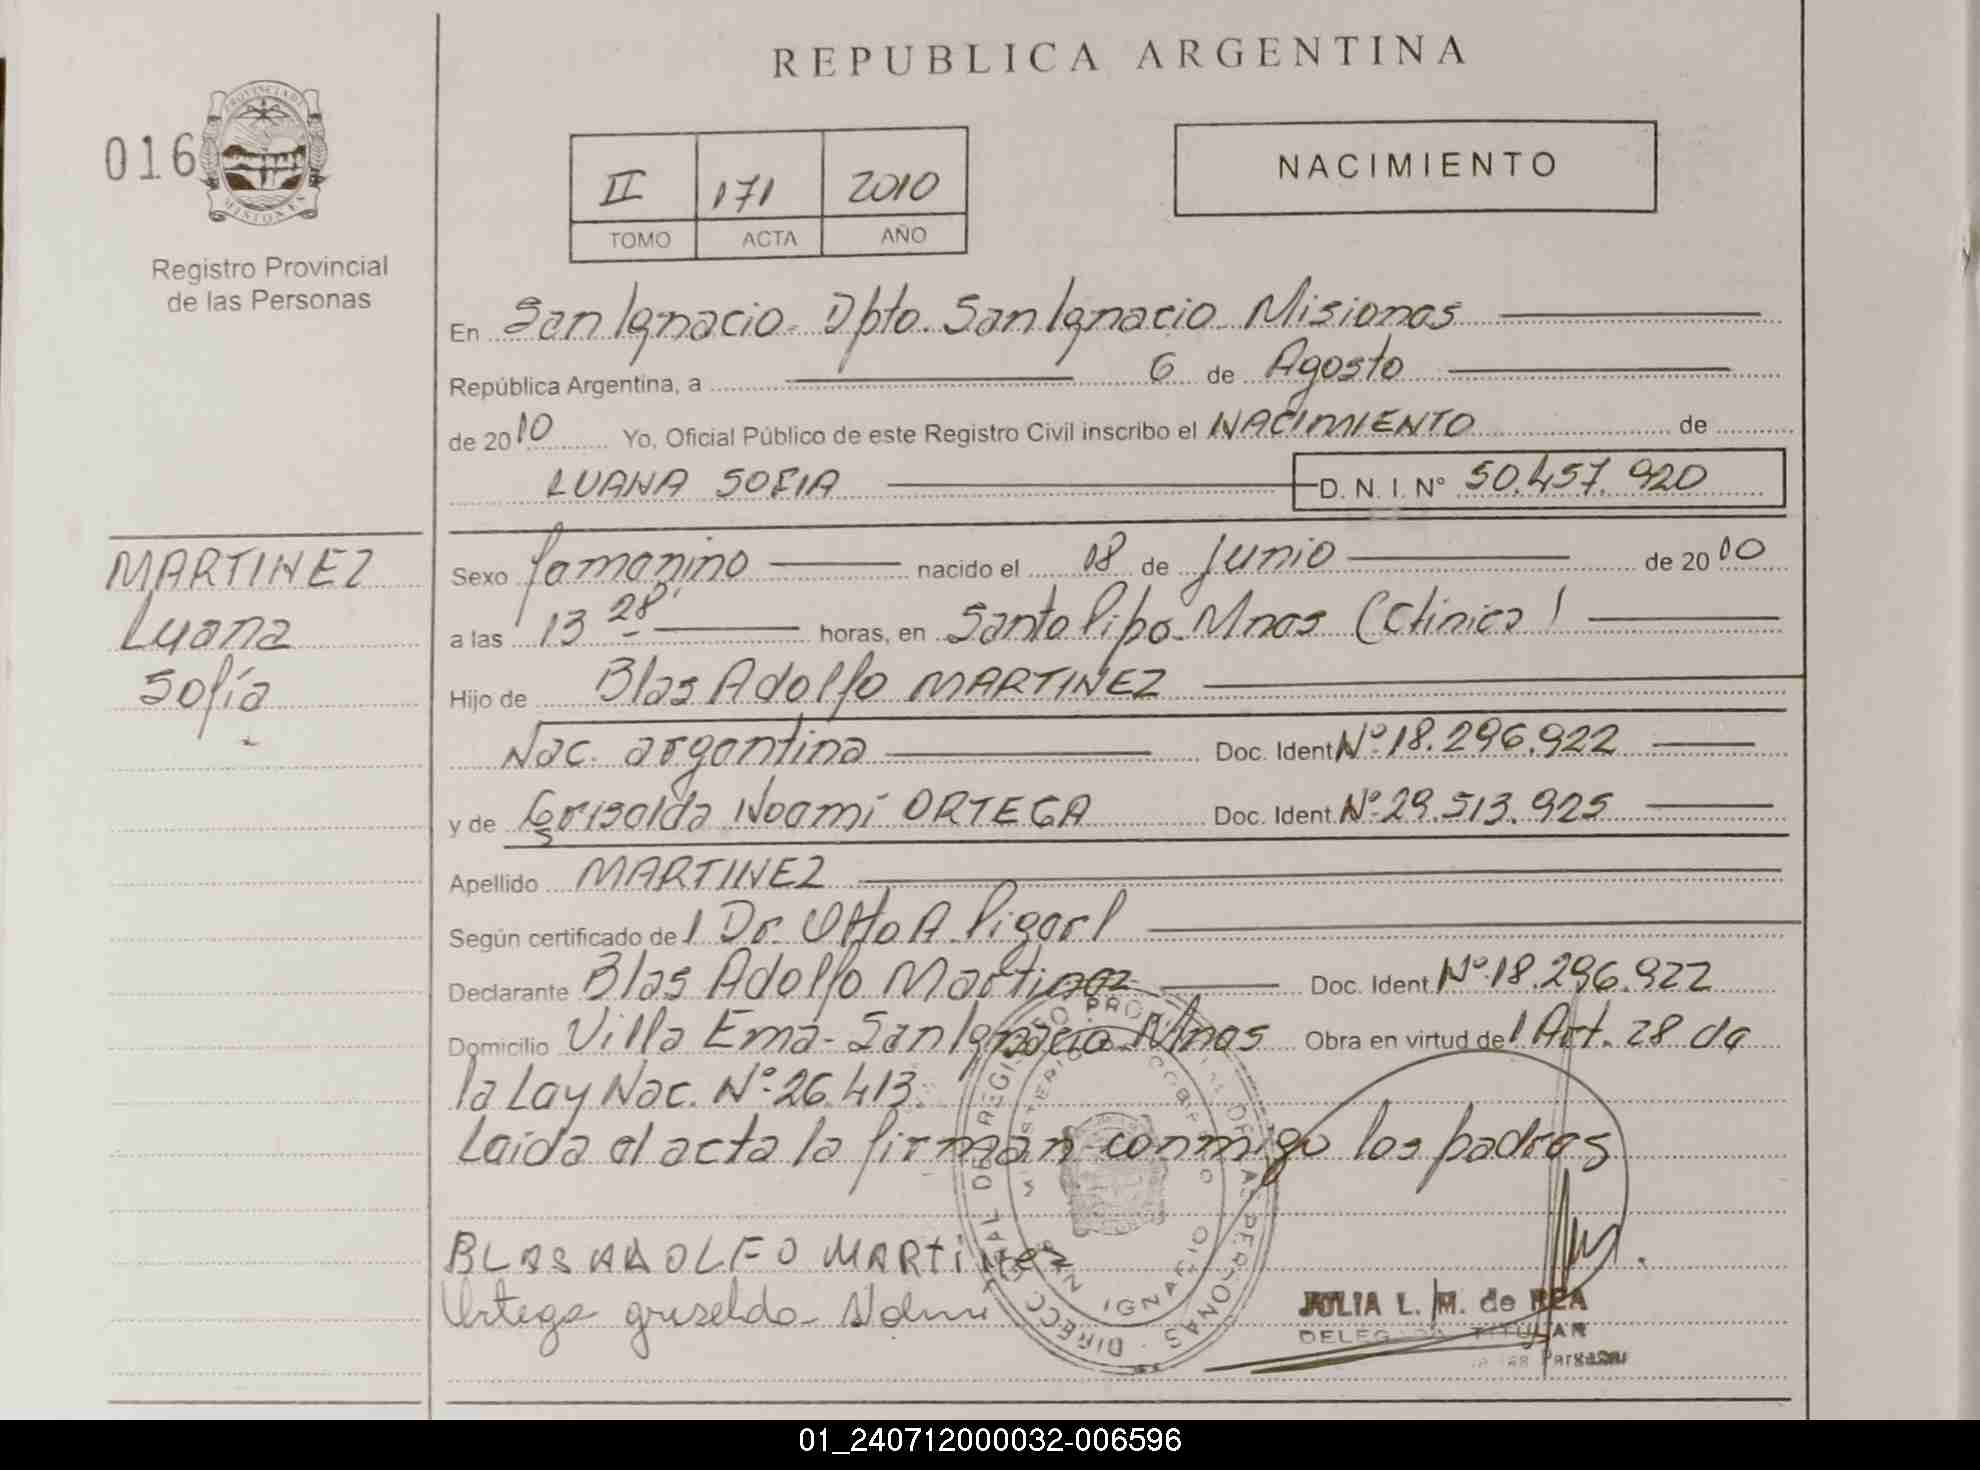 REPUBLICA ARGENTINA
016
PROVINCIA DE MISIONES
Registro Provincial
de las Personas
II 171 2010
TOMO ACTA AÑO
NACIMIENTO
En San Ignacio Dpto. San Ignacio Misiones
República Argentina, a 6 de Agosto
de 2010 Yo, Oficial Público de este Registro Civil inscribo el NACIMIENTO de
LUANA SOFIA D. N. I. N° 50.457.920
MARTINEZ
Luana
Sofía
Sexo femenino nacido el 08 de Junio de 2010
a las 13 28' horas, en Santo Pipo Mnes (Clinica)
Hijo de Blas Adolfo MARTINEZ
Nac. argentina Doc. Ident. N° 18.296.922
y de Griselda Noemí ORTEGA Doc. Ident. N° 29.513.925
Apellido MARTINEZ
Según certificado del Dr. Otto A.
Declarante Blas Adolfo Martinez Doc. Ident. N° 18.296.922
Domicilio Villa Ema - San Ignacio Mnes Obra en virtud del Art. 28 de
la Ley Nac. N° 26.413.
Leida el acta la firman conmigo los padres
BLAS ADOLFO MARTINEZ
Ortega griselda Noemi
DIRECC GRAL DE REGISTRO PROVINCIAL DE LAS PERSONAS
MINISTERIO GOBIERNO
SAN IGNACIO
JULIA L. M. de REA
DELEGADA TITULAR
01_240712000032-006596